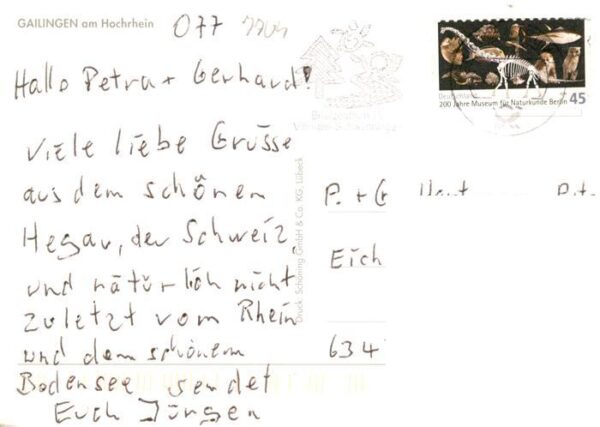 GAILINGEN am Hochrhein
077
Hallo Petra + Gerhard!
Viele liebe Grüsse
aus dem schönen
Hegau, der Schweiz,
und natürlich nicht
zuletzt vom Rhein
und dem schönem
Bodensee sendet
Euch Jürgen
Druck: Schöning GmbH & Co. KG, Lübeck
Deutschland
200 Jahre Museum für Naturkunde Berlin 45
P. + G
Eich
634